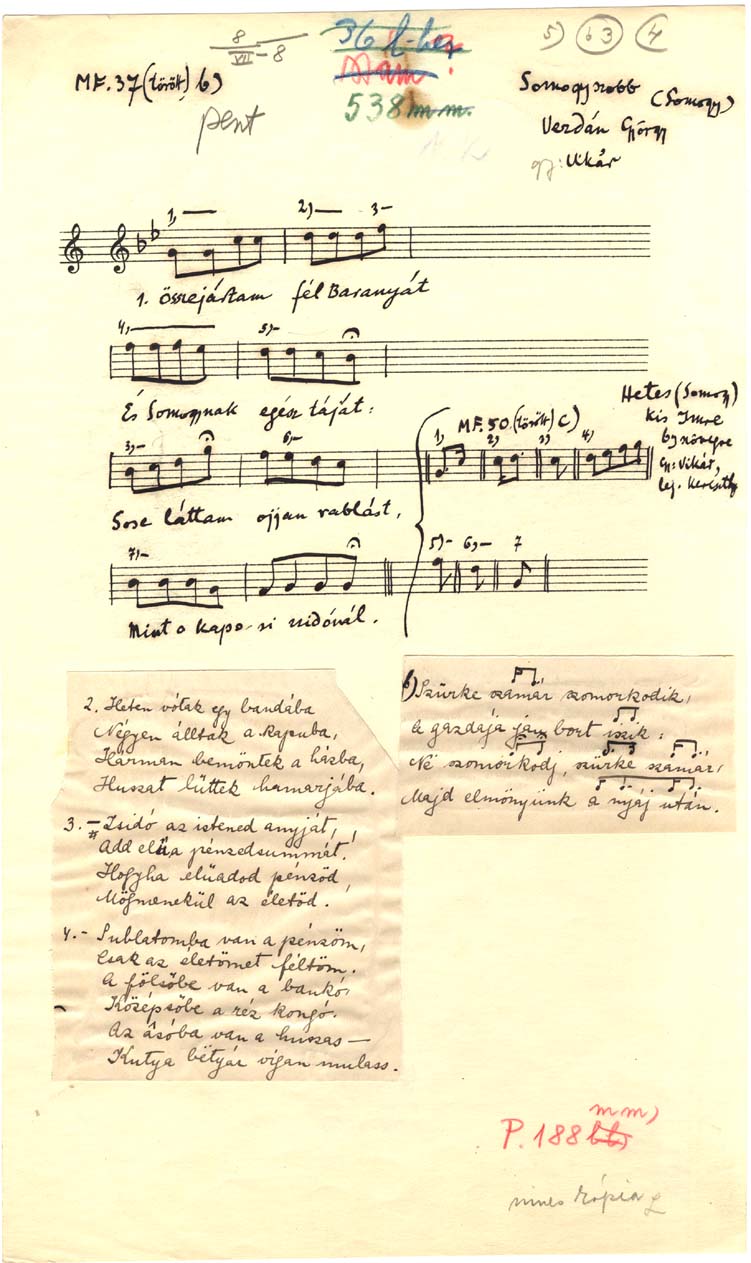 8/VII - 8
36
5) 63 4
MF. 37 (törött) b)
538 m.m.
pent
Somogyszobb (Somogy)
Verdán György
gy: Vikár
1) 2) 3
1. Összejártam fél Baranyát
4) 5)
És Somogynak egész táját:
3) 6)
Sose láttam ojjan rablást,
7)
Mint a kapo-si zsidónál.
MF. 50. (törött) c)
Hetes (Somogy)
Kis Imre
b) szövegre
gy: Vikár,
1) 2) 3) 4)
5) 6) 7
2. Heten vótak egy bandába
Négyen álltak a kapuba,
Hárman bemöntek a házba,
Huszat lüttek hamarjába.
3. Zsidó az istened anyját,
Add elüa pénzedsummát!
Hogyha elüadod pénzöd,
Mögmenekül az életöd.
4. Sublatomba van a pénzöm,
Csak az életömet féltöm.
A fölsőbe van a bankó,
Középsőbe a réz kongó.
Az ásóba van a húszas —
Kutya bëtyár vígan mulass.
b) Szürke szamár szomorkodik,
A gazdája jáu bort iszik:
Në szomorkodj, szürke szamár,
Majd elmönyünk a nyáj után.
P. 188 mm)
nincs kópia